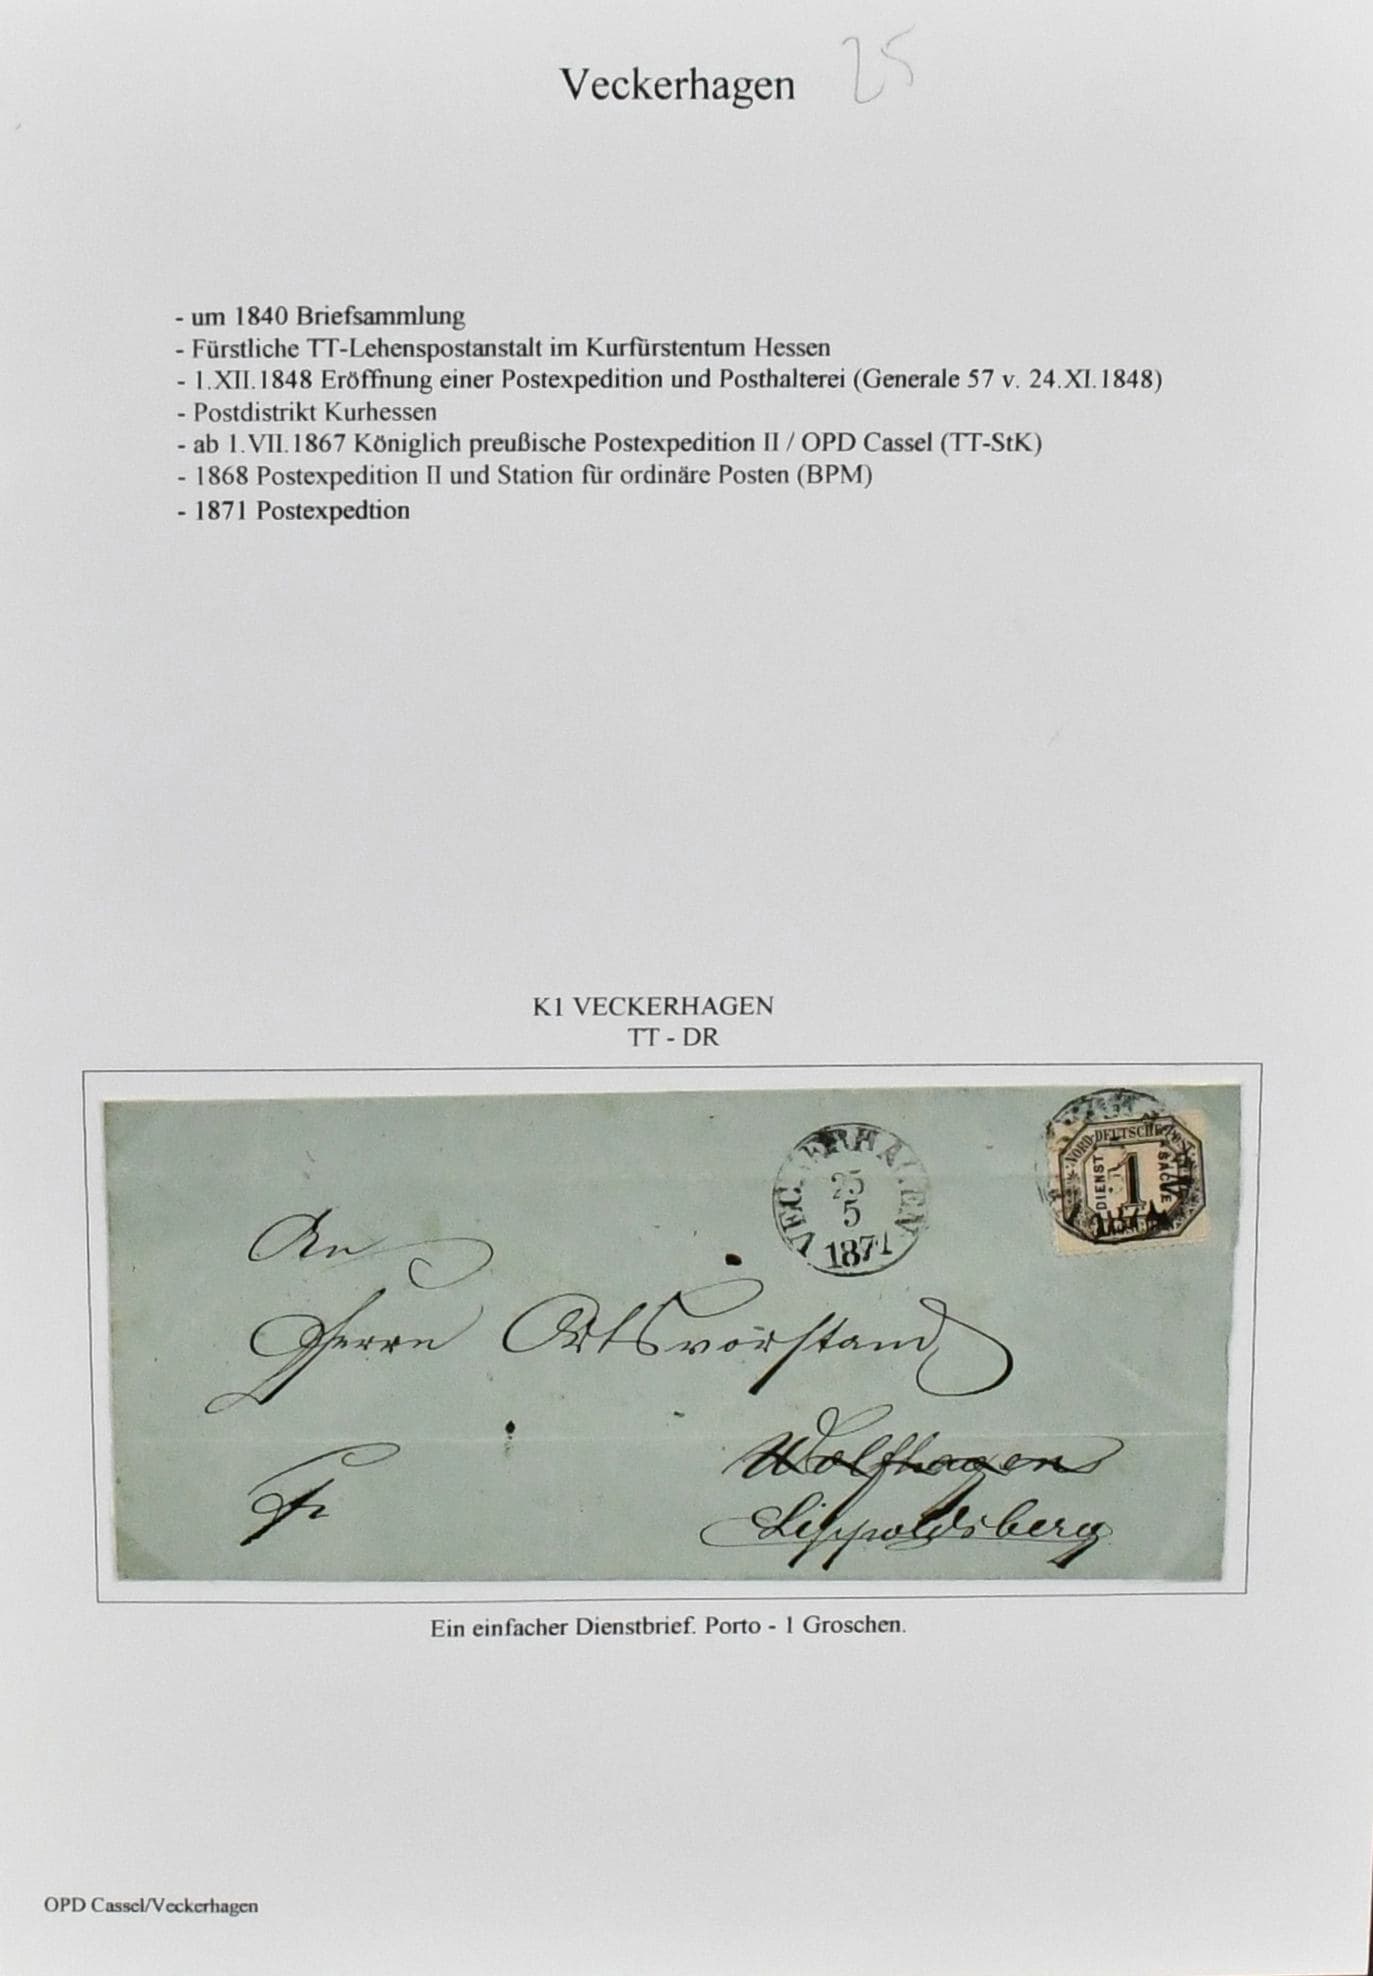 Veckerhagen 25
- um 1840 Briefsammlung
- Fürstliche TT-Lehenspostanstalt im Kurfürstentum Hessen
- 1.XII.1848 Eröffnung einer Postexpedition und Posthalterei (Generale 57 v. 24.XI.1848)
- Postdistrikt Kurhessen
- ab 1.VII.1867 Königlich preußische Postexpedition II / OPD Cassel (TT-StK)
- 1868 Postexpedition II und Station für ordinäre Posten (BPM)
- 1871 Postexpedtion
K1 VECKERHAGEN
TT - DR
VECKERHAGEN
25
5
1871
NORD-DEUTSCHE POST
DIENST 1 SACHE
1871
An
Herrn Ortsvorstand
Wolfhagen
Fr
Lippoldsberg
Ein einfacher Dienstbrief. Porto - 1 Groschen.
OPD Cassel/Veckerhagen